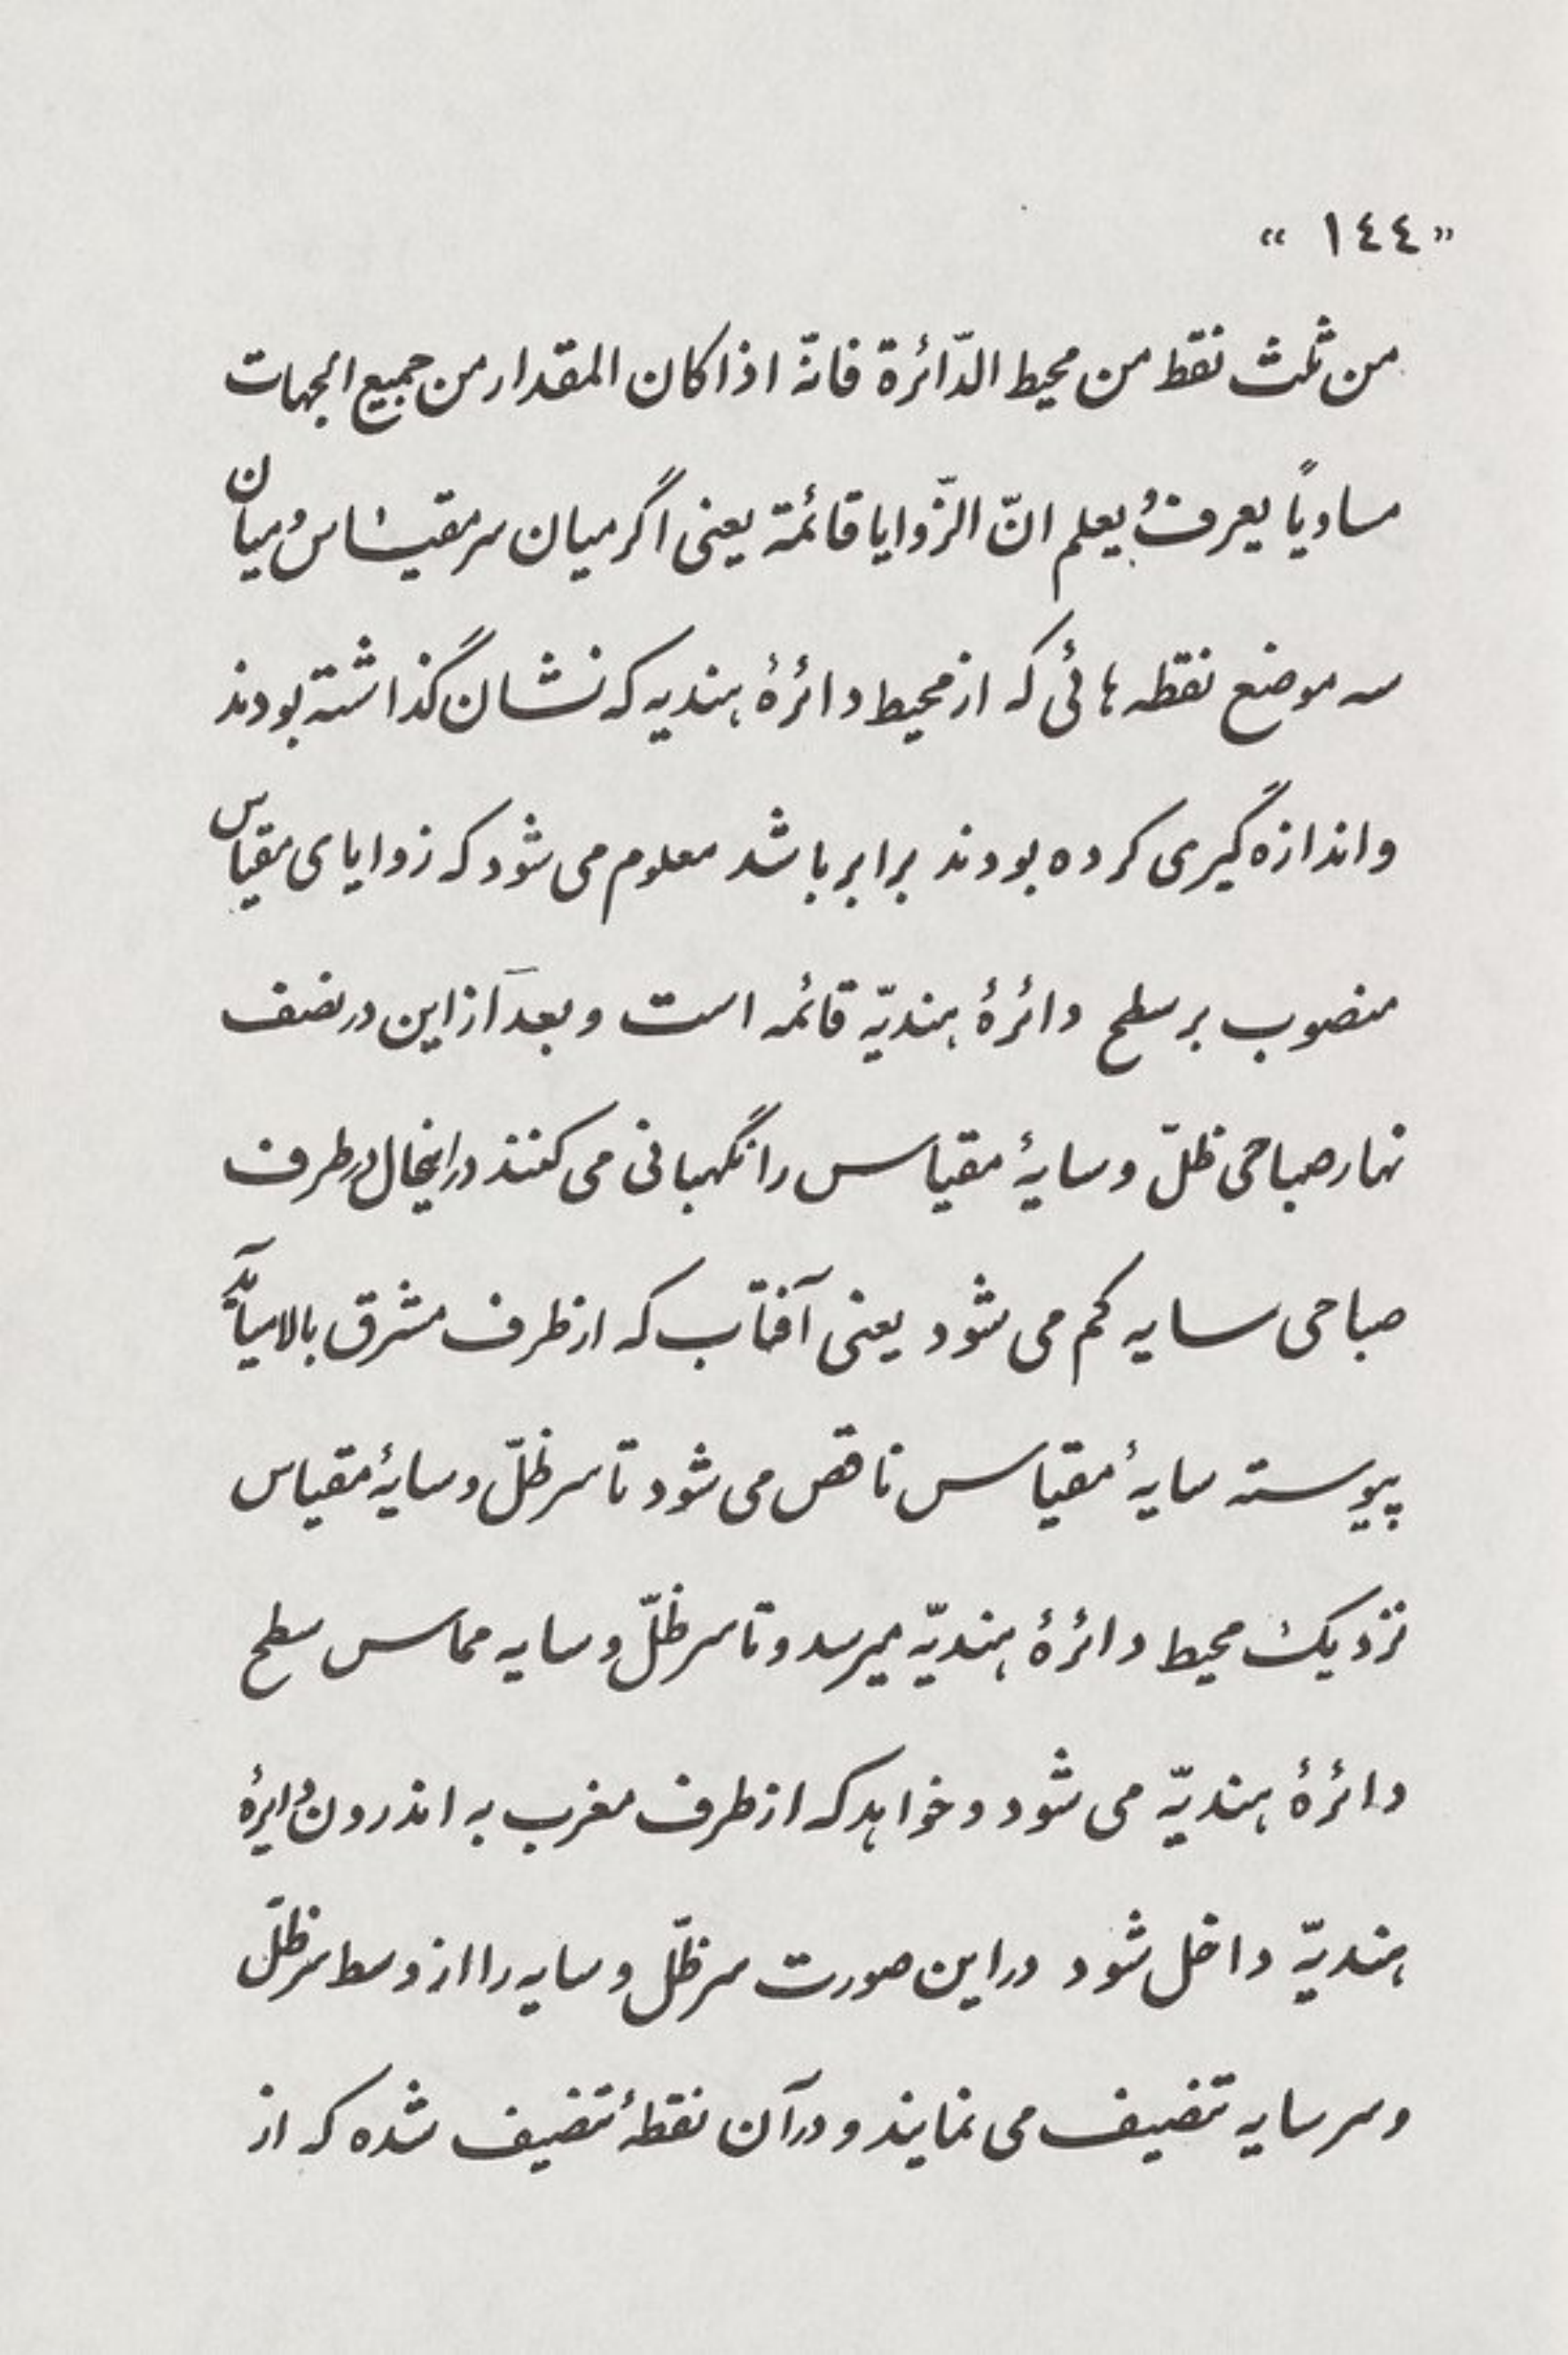 «١٤٤»
من ثلث نقط من محیط الدّائرة فانّه اذا کان المقدار من جمیع الجهات
مساویاً یعرف و یعلم انّ الزّوایا قائمة یعنی اگر میان سر مقیاس و میان
سه موضع نقطه هائی که از محیط دائرهٔ هندیه که نشان گذاشته بودند
و اندازه گیری کرده بودند برابر باشد معلوم می شود که زوایای مقیاس
منصوب بر سطح دائرهٔ هندیّه قائمه است و بعد از این در نصف
نهار صباحی ظلّ و سایهٔ مقیاس را نگهبانی می کنند در اینحال در طرف
صباحی سایه کم می شود یعنی آفتاب که از طرف مشرق بالا میآید
پیوسته سایهٔ مقیاس ناقص می شود تا سر ظلّ و سایهٔ مقیاس
نزدیک محیط دائرهٔ هندیّه میرسد و تا سر ظلّ و سایه مماس سطح
دائرهٔ هندیّه می شود و خواهد که از طرف مغرب به اندرون دایرهٔ
هندیّه داخل شود در این صورت سر ظلّ و سایه را از وسط سر ظلّ
و سر سایه تنصیف می نمایند و در آن نقطهٔ تنصیف شده که از